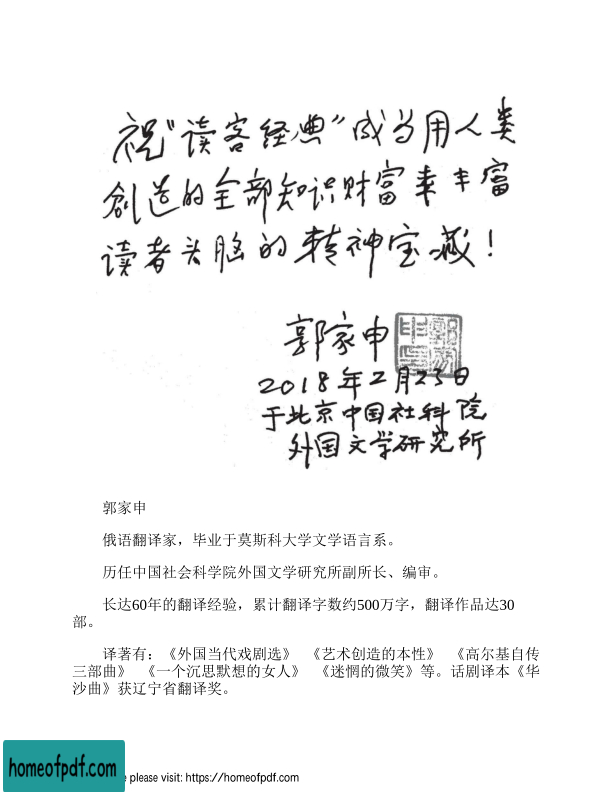 祝“读客经典”成为用人类
创造的全部知识财富来丰富
读者头脑的精神宝藏！
郭家申
2018年2月23日
于北京中国社科院
外国文学研究所
郭家申
俄语翻译家，毕业于莫斯科大学文学语言系。
历任中国社会科学院外国文学研究所副所长、编审。
长达60年的翻译经验，累计翻译字数约500万字，翻译作品达30
部。
译著有：《外国当代戏剧选》 《艺术创造的本性》 《高尔基自传
三部曲》 《一个沉思默想的女人》 《迷惘的微笑》等。话剧译本《华
沙曲》获辽宁省翻译奖。
homeofpdf.com
e please visit: https://homeofpdf.com